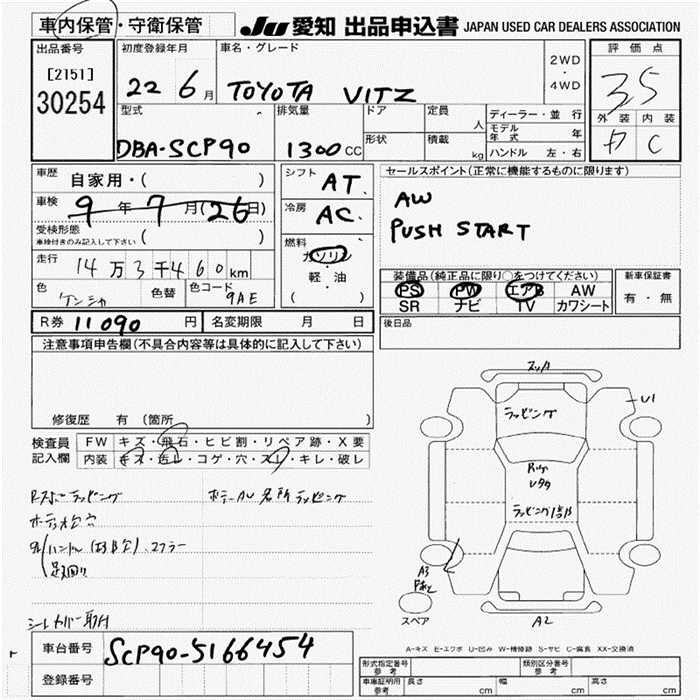 車内保管・守衛保管 JU 愛知 出品申込書 JAPAN USED CAR DEALERS ASSOCIATION
出品番号 [2151] 30254
初度登録年月 22 6 月
車名・グレード TOYOTA VITZ
2WD・4WD
評価点 3.5
外装 内装 C
型式 DBA-SCP90
排気量 1300 CC
ドア 形状
定員 人
積載 kg
ディーラー・並行
モデル年式 年
ハンドル 左・右
車歴 自家用・( )
車検 9 年 7 月(26日)
受検形態 ( )
車検付きのみ記入して下さい
走行 14 万 3 千 460 km
色 色替 色コード 9AE
シフト AT
冷房 AC
燃料 ガソリン
軽・油
( )
セールスポイント(正常に機能するものに限ります)
AW
PUSH START
装備品(純正品に限り○をつけてください)
PS PW エアB AW
SR ナビ TV カワシート
新車保証書 有・無
後日品
R券 11090 円 名変期限 月 日
注意事項申告欄(不具合内容等は具体的に記入して下さい)
修復歴 有 (箇所 )
検査員記入欄
FW キズ・飛石・ヒビ割・リペア跡・X要
内装 キズ・汚レ・コゲ・穴・スレ・キレ・破レ
ラッピング
U1
ラッピング
A3
A2
スペア
A-キズ E-エクボ U-凹み W-補修跡 S-サビ C-腐食 XX-交換済
車台番号 SCP90-5166454
登録番号
形式指定番号 参考 類別区分番号 参考
車庫証明用 参考 長さ cm 幅 cm 高さ cm